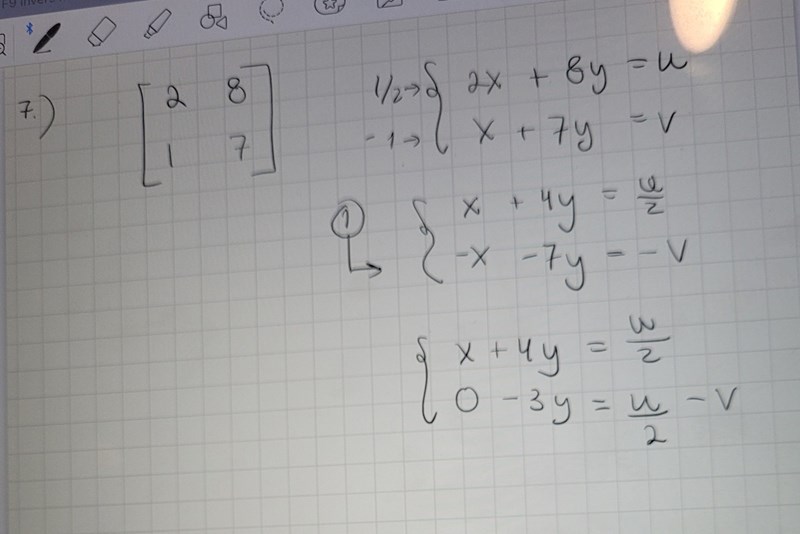 7.) [2 8
1 7]
1/2→ { 2x + 8y = u
-1→ x + 7y = v
① { x + 4y = u/2
-x - 7y = -v
{ x + 4y = u/2
0 - 3y = u/2 - v